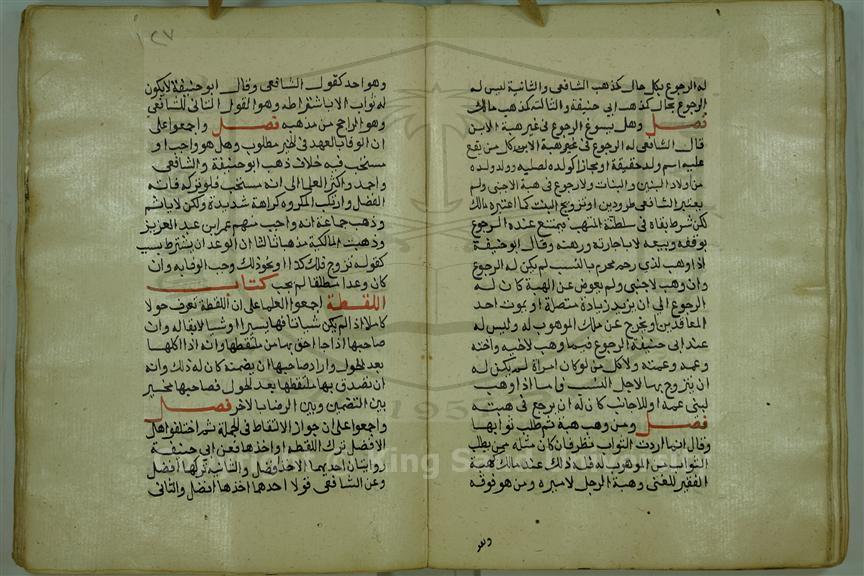 له الرجوع بكل حال كمذهب الشافعى والثانية ليس له
الرجوع بحال كمذهب ابى حنيفة والثالثة كمذهب مالك
فصل وهل يسوغ الرجوع فى غير هبة الابن
قال الشافعى له الرجوع فى غير هبة الابن كل من يقع
عليه اسم ولد حقيقة او مجازا كولده لصلبه وولد ولده
من اولاد البنين والبنات ولا رجوع فى هبة الاجنبى ولم
يعتبر الشافعى طرو دين او تزويج البنت كما اعتبره مالك
لكن شرط بقاه فى سلطنة المتهب فيمتنع عنده الرجوع
بوقفه وبيعه لا باجارته ورهنه وقال ابو حنيفة
اذا وهب لذى رحم محرم بالنسب لم يكن له الرجوع
وان وهب لاجنبى ولم يعوض عن الهبة كان له
الرجوع الى ان يزيد زيادة متصلة او يموت احد
المتعاقدين او يخرج عن ملك الموهوب له وليس له
عند ابى حنيفة الرجوع فيما وهب لاخيه واخته
وعمه وعمته ولا كل من لو كان امراة لم يكن له
ان يتزوج بها لاجل النسب فاما اذا وهب
لبنى عمه او للاجانب كان له ان يرجع فى هبته
فصل ومن وهب هبة ثم طلب ثوابها
وقال انما اردت الثواب نظر فان كان مثله ممن يطلب
الثواب من الموهوب له فله ذلك عند مالك كهبة
الفقير للغنى وهبة الرجل لاميره ومن هو فوقه
وهو
١٢٧
وهو احد كقول الشافعى وقال ابو حنيفة لا يكون
له ثواب الا باشتراطه وهو القول الثانى للشافعى
وهو الراجح من مذهبه فصل واجمعوا على
ان الوفا بالعهد فى الخير مطلوب وهل هو واجب او
مستحب فيه خلاف ذهب ابو حنيفة والشافعى
واحمد واكثر العلما الى انه مستحب فلو تركه فاته
الفضل وارتكب المكروه كراهة شديدة ولكن لا ياثم
وذهب جماعة انه واجب منهم عمر ابن عبد العزيز
وذهبت المالكية مذهبا ثالثا ان الوعد ان يشترط بسبب
كقوله تزوج فلك كذا او نحو ذلك وجب الوفا به وان
كان وعدا مطلقا لم يجب كتاب
اللقطة اجمعوا العلما على ان اللقطة تعرف حولا
كاملا اذا لم يكن شيا تافها يسيرا او شيا لا بقا له وان
صاحبها اذا جا احق بها من ملتقطها وانه اذا اكلها
بعد الحول واراد صاحبها ان يضمنه كان له ذلك وانه
ان تصدق بها ملتقطها بعد الحول فصاحبها مخير
بين التضمين وبين الرضا بالاجر فصل
واجمعوا على ان جواز الالتقاط فى الجملة ثم اختلفوا هل
الافضل ترك اللقطة او اخذها فعن ابى حنيفة
روايتان احديهما الاخذ افضل والثانية تركها افضل
وعن الشافعى قولا احدها اخذها افضل والثانى
1957
King S